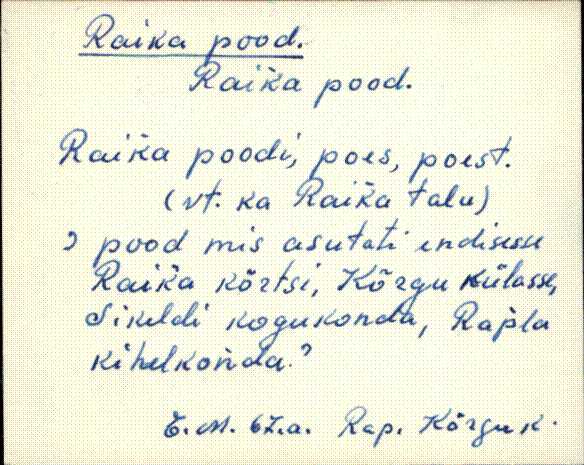 Raika pood.
Raik̆a pood.
Raik̆a poodi, poes, poest.
(vt. ka Raik̆a talu)
? pood mis asutati endisesse
Raik̆a kõrtsi, Kõrgu külasse,
Sikeldi kogukonda, Rapla
kihelkonda.?
E. M. 67.a. Rap. Kõrgu k.